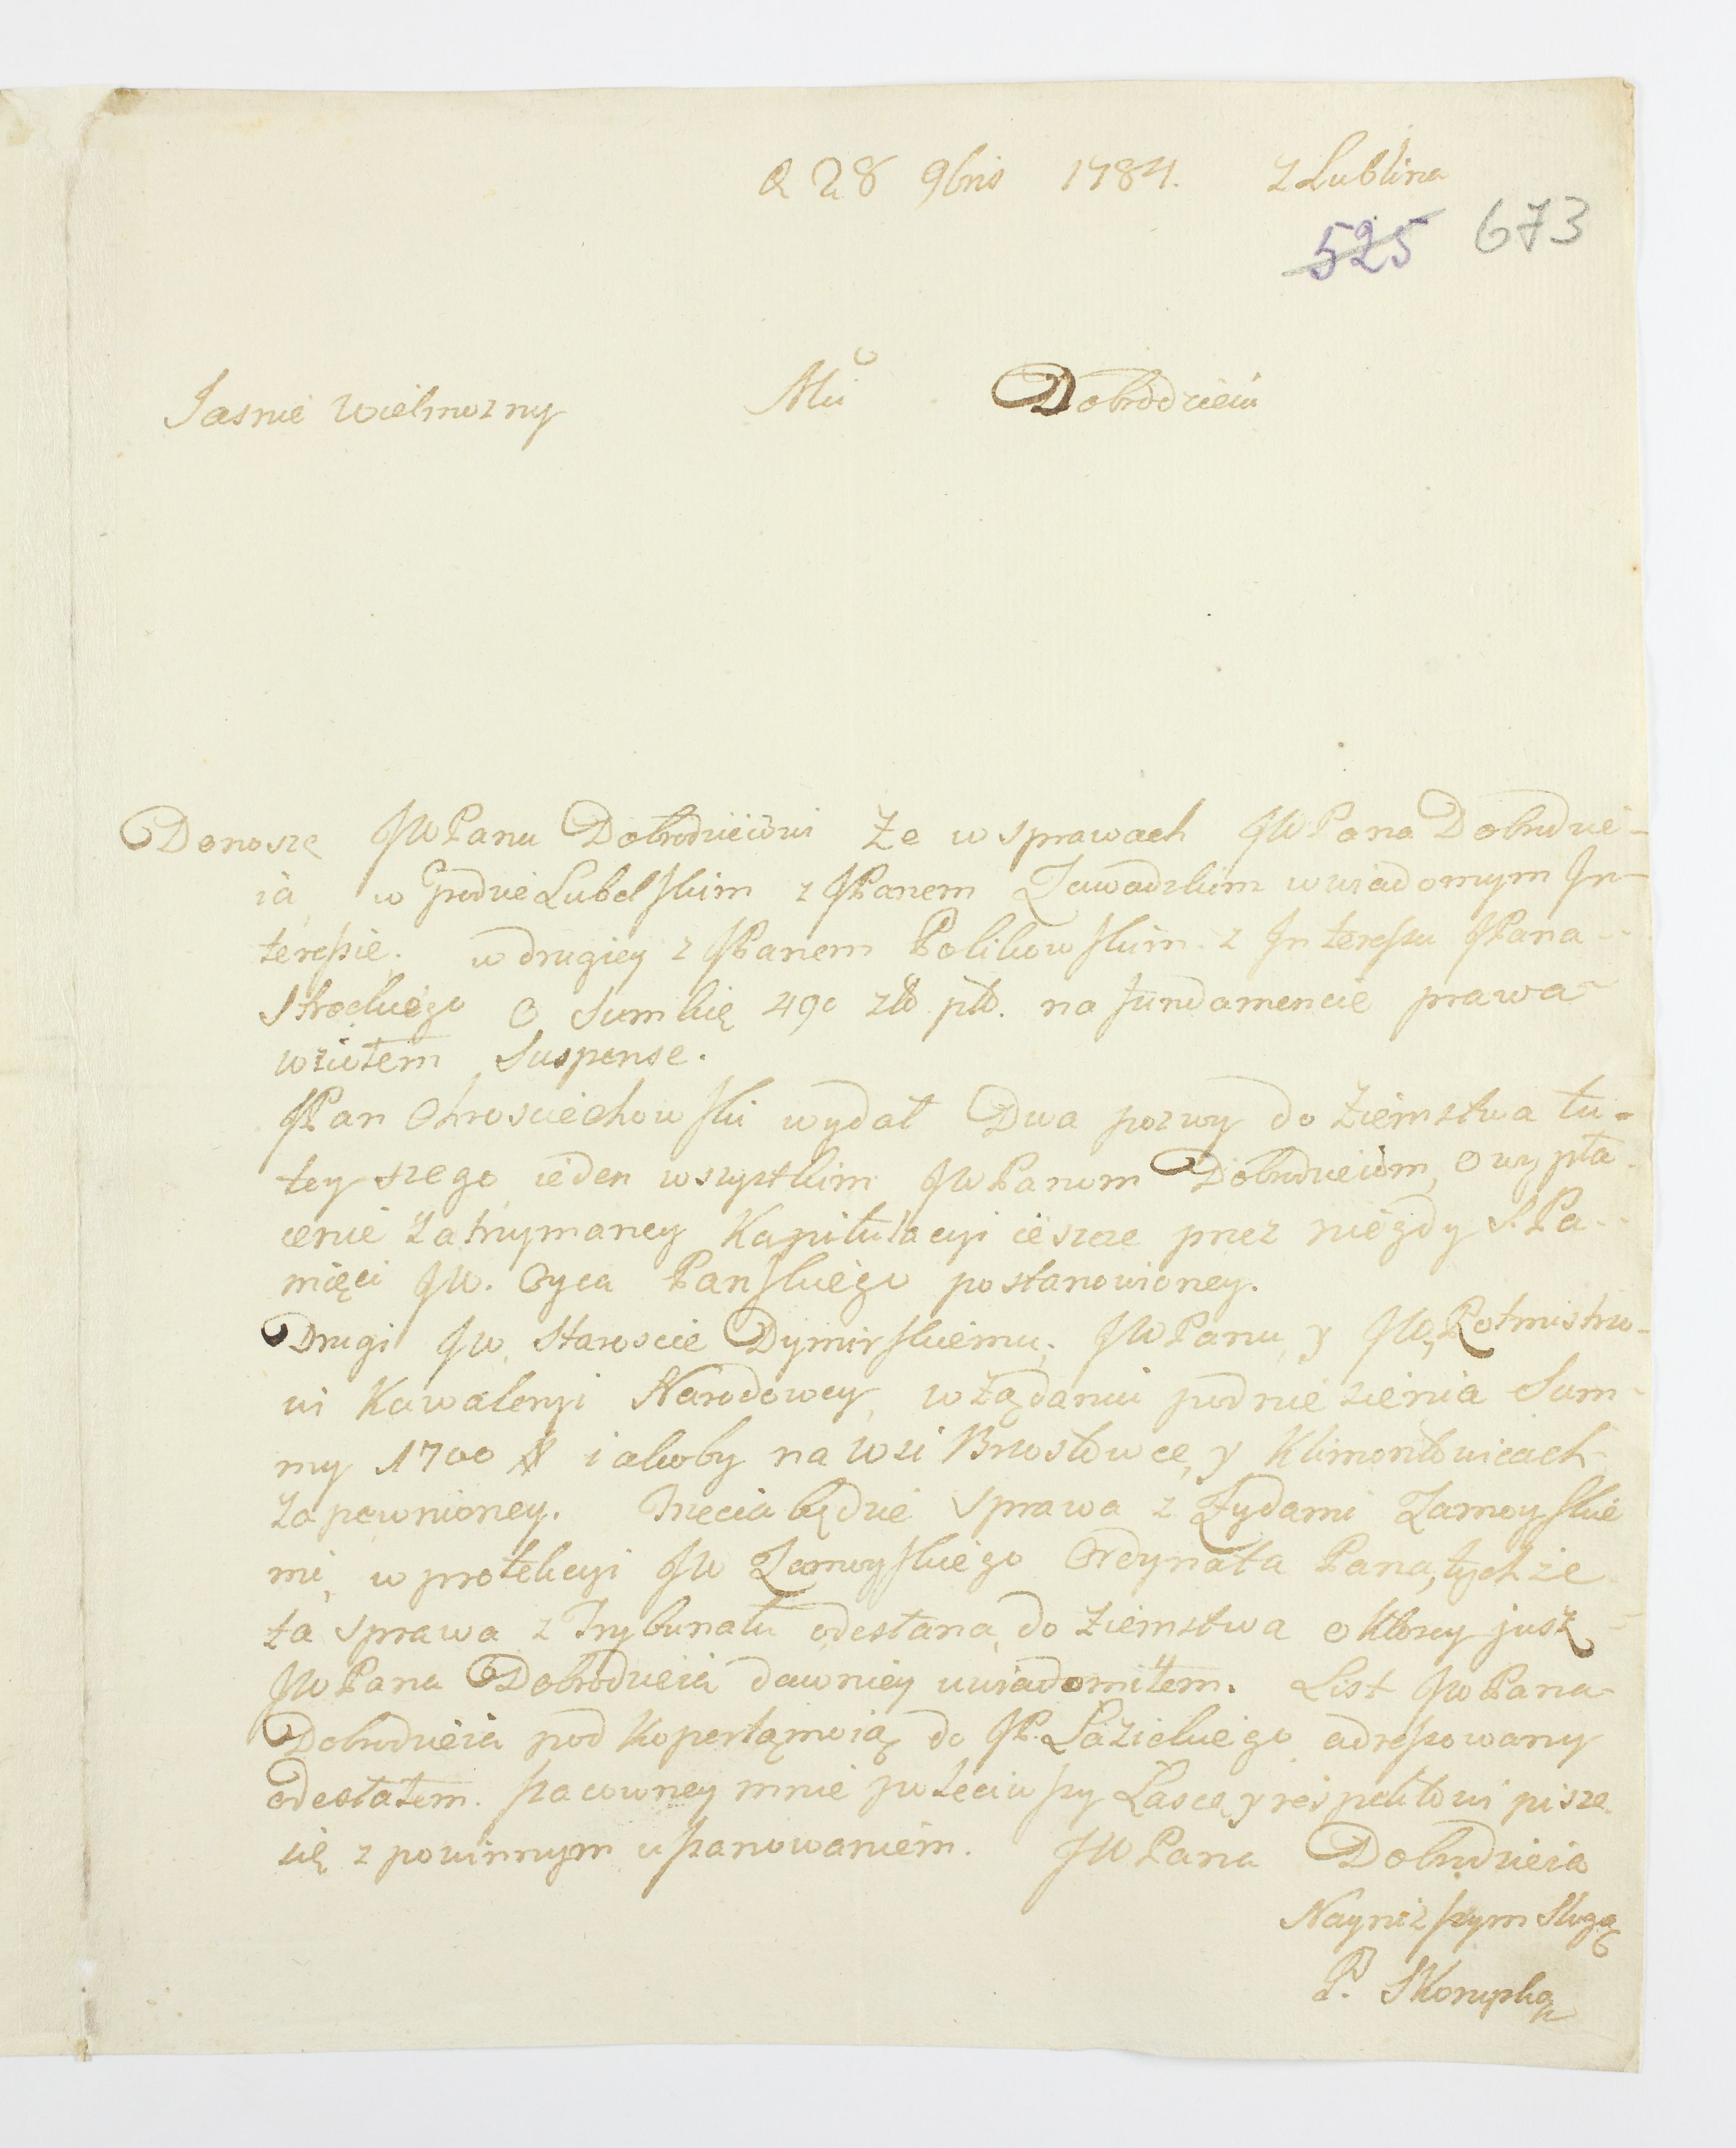 d 28 9bris 1784. z Lublina
525 673
Jasnie Wielmozny Mci Dobrodzieiu
Donoszę JWPanu Dobrodzieiowi że w sprawach JWPana Dobrodzie-
ia, w Grodzie Lubelskim z JPanem Zawadzkim w wiadomym In-
teressie. w drugiey z JPanem Polikowskim z Interessu JPana
o Sumkię 490 złł. pll. na fundamencie prawa
wziołem Suspense.
JPan Chrosciechowski wydał Dwa pozwy do Ziemstwa tu-
teyszego ieden wszystkim JWPanom Dobrodzieiom, o wypła-
cenie zatrzymaney Kapitulacyi ieszcze przez niegdy S. Pa-
mięci JW. Oyca Pańskiego postanowioney.
Drugi JW. Staroscie Dymirskiemu, JWPanu, y JW, Rotmistrzo-
wi Kawaleryi Narodowey, w żądaniu podniesienia Sum-
my 1700 iakoby na Wsi Brzostowce, y Klimontowicach
zapewnioney. Trzecia będzie sprawa z Żydami Zamoyskie
mi, w protekcyi JW Zamoyskiego Ordynata Pana, tychże
ta sprawa z Trybunału odesłana do Ziemstwa o ktorey jusz
JWPana Dobrodzieia dawniey uwiadomiłem. List JWPana
Dobrodzieia pod Kopertą moią do JP. Łazickiego adressowany
odesłałem. szacowney mnie poleciwszy Łasce, y respektowi pisze
się z powinnym uszanowaniem. JWPana Dobrodzieia
Nayniższym Sługą
P. Skorupka